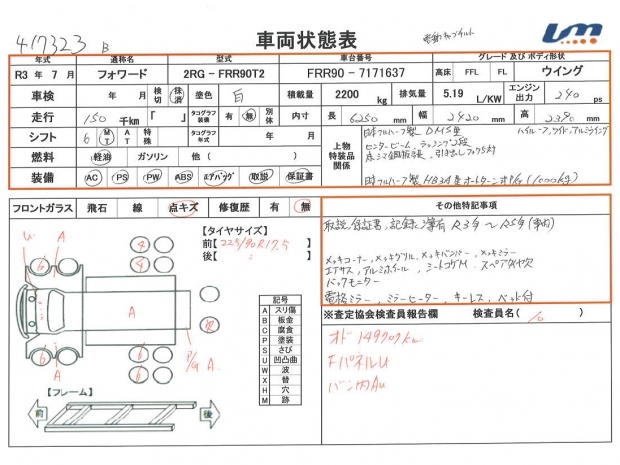 417323 B
車両状態表
電動キャブチルト
年式 通称名 型式 車台番号 グレード及びボディ形状
R3 年 7 月 フォワード 2RG - FRR90T2 FRR90 - 7171637 高床 FFL FL ウイング
車検 年 月 検切 抹済 塗色 白 積載量 2200 kg 排気量 5.19 L/KW エンジン出力 240 ps
走行 150 千km 「 」 タコグラフ装備 有 無 別体 内寸 長 6250 mm 幅 2420 mm 高 2390 mm
シフト 6 MT AT 特殊 タコグラフ年式 年 月
上物特装品関係
日本フルハーフ製 DMS型 ハイルーフ,ワイド,アルミウイング
センタービーム,ラッシング2段
床シマ鋼板張,引出しフック5対
日本フルハーフ製 HB3A型 オートターンP/G (1000kg)
燃料 軽油 ガソリン 他 ( )
装備 AC PS PW ABS エアバッグ 取説 保証書
フロントガラス 飛石 線 点キズ 修復歴 有 無
その他特記事項
取説,保証書,記録簿有 R3年 ~ R5年 (車内)
メッキコーナー,メッキグリル,メッキバンパー,メッキミラー
エアサス,アルミホイール,シートコゲM,スペアタイヤ欠
バックモニター
電格ミラー,ミラーヒーター,キーレス,ベット付
【タイヤサイズ】
前【 225/90R17.5 】
後【 : 】
U A
6 6 6 6
4 4
A
6 6
A
P/G A.
記号
A スリ傷
B 板金
C 腐食
P 塗装
S さび
U 凹凸曲
W 波
X 替
H 穴
M 跡
【フレーム】
前 後
※査定協会検査員報告欄 検査員名( )
オド 149707km
FパネルU
バン内AU